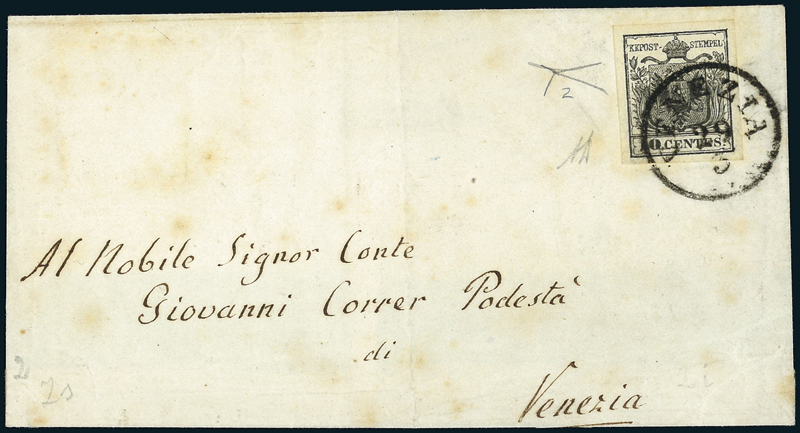 KKPOST-STEMPEL
10 CENTES.
VENEZIA
29
3
2
Al Nobile Signor Conte
Giovanni Correr Podestà
di
Venezia
2